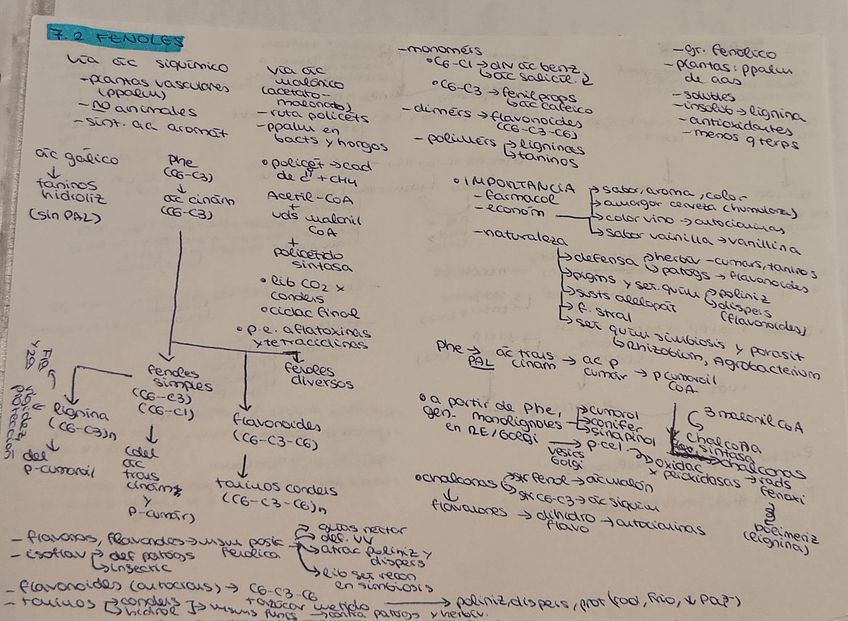 7.2 FENOLES
vía ác siquímico
-plantas vasculares
(ppalm)
-no animales
-sínt. ác aromát
ác gálico
↓
taninos
hidroliz
(sin PAL)
Phe
(C6-C3)
↓
ác cinám
(C6-C3)
vía ác
malónico
(acetato-
malonato)
-ruta policéts
-ppalm en
bacts y hongos
• policét → cad
de
Acetil-CoA
+
uds malonil
CoA
+
policétido
sintasa
• lib CO2 x
condens
• ciclac final
• p.e. aflatoxinas
y tetraciclinas
fenoles
simples
(C6-C3)
(C6-C1)
fenoles
diversos
lignina
(C6-C3)n
↓
del
p-cumaroil
rigidez
protección
↓
(del
ác
trans
cinám
y
p-cumár)
flavonoides
(C6-C3-C6)
↓
taninos condens
(C6-C3-C6)n
-monómers
• C6-C1 → ác benz
↳ ác salicil
• C6-C3 → fenilprops
↳ ác cafeico
-dímers → flavonoides
(C6-C3-C6)
-polímers → ligninas
↳ taninos
-gr. fenólico
-plantas: ppalm
de aas
-solubles
-insolub → lignina
-antioxidantes
-menos q terps
• IMPORTANCIA
-farmacol
-económ
→ sabor, aroma, color
→ amargor cerveza (humulona)
→ color vino → antocianinas
→ sabor vainilla → vanillina
-naturaleza
→ defensa → herbív - cumars, taninos
↳ patógs → flavonoides
→ pigms y señ. quím → poliniz
↳ dispers
(flavonoides)
→ susts alelopát
→ f. stral
→ señ quím simbiosis y parasit
↳ Rhizobium, Agrobacterium
Phe → ác trans → ác p → p cumaroil
PAL cinám cumár CoA
• a partir de Phe,
gen- monolignoles
en RE/Golgi
→ cumarol
→ conifer
→ sinapinol
→ p.cel → oxidac → rads
vesics
Golgi
x peroxidasas
fenoxi
3 malonil CoA
chalcona
sintasa
→ chalconas
polimeriz
(lignina)
• chalconas → gr fenol → ác malón
↳ gr C6-C3 → ác siquim
↓
flavanones → dihidro → antocianinas
flavo
-flavonas, flavonoles → misma posic
→ guías néctar
→ def. UV
→ atrac poliniz y
dispers
→ lib señ recon
en simbiosis
-isoflav → def patógs
fenólica
↳ insectic
-flavonoides (antocians) → C6-C3-C6
→ poliniz, dispers, prot (rad, frío,
-taninos → condens
↳ hidrol
→ misma func → contra patógs y herbív.